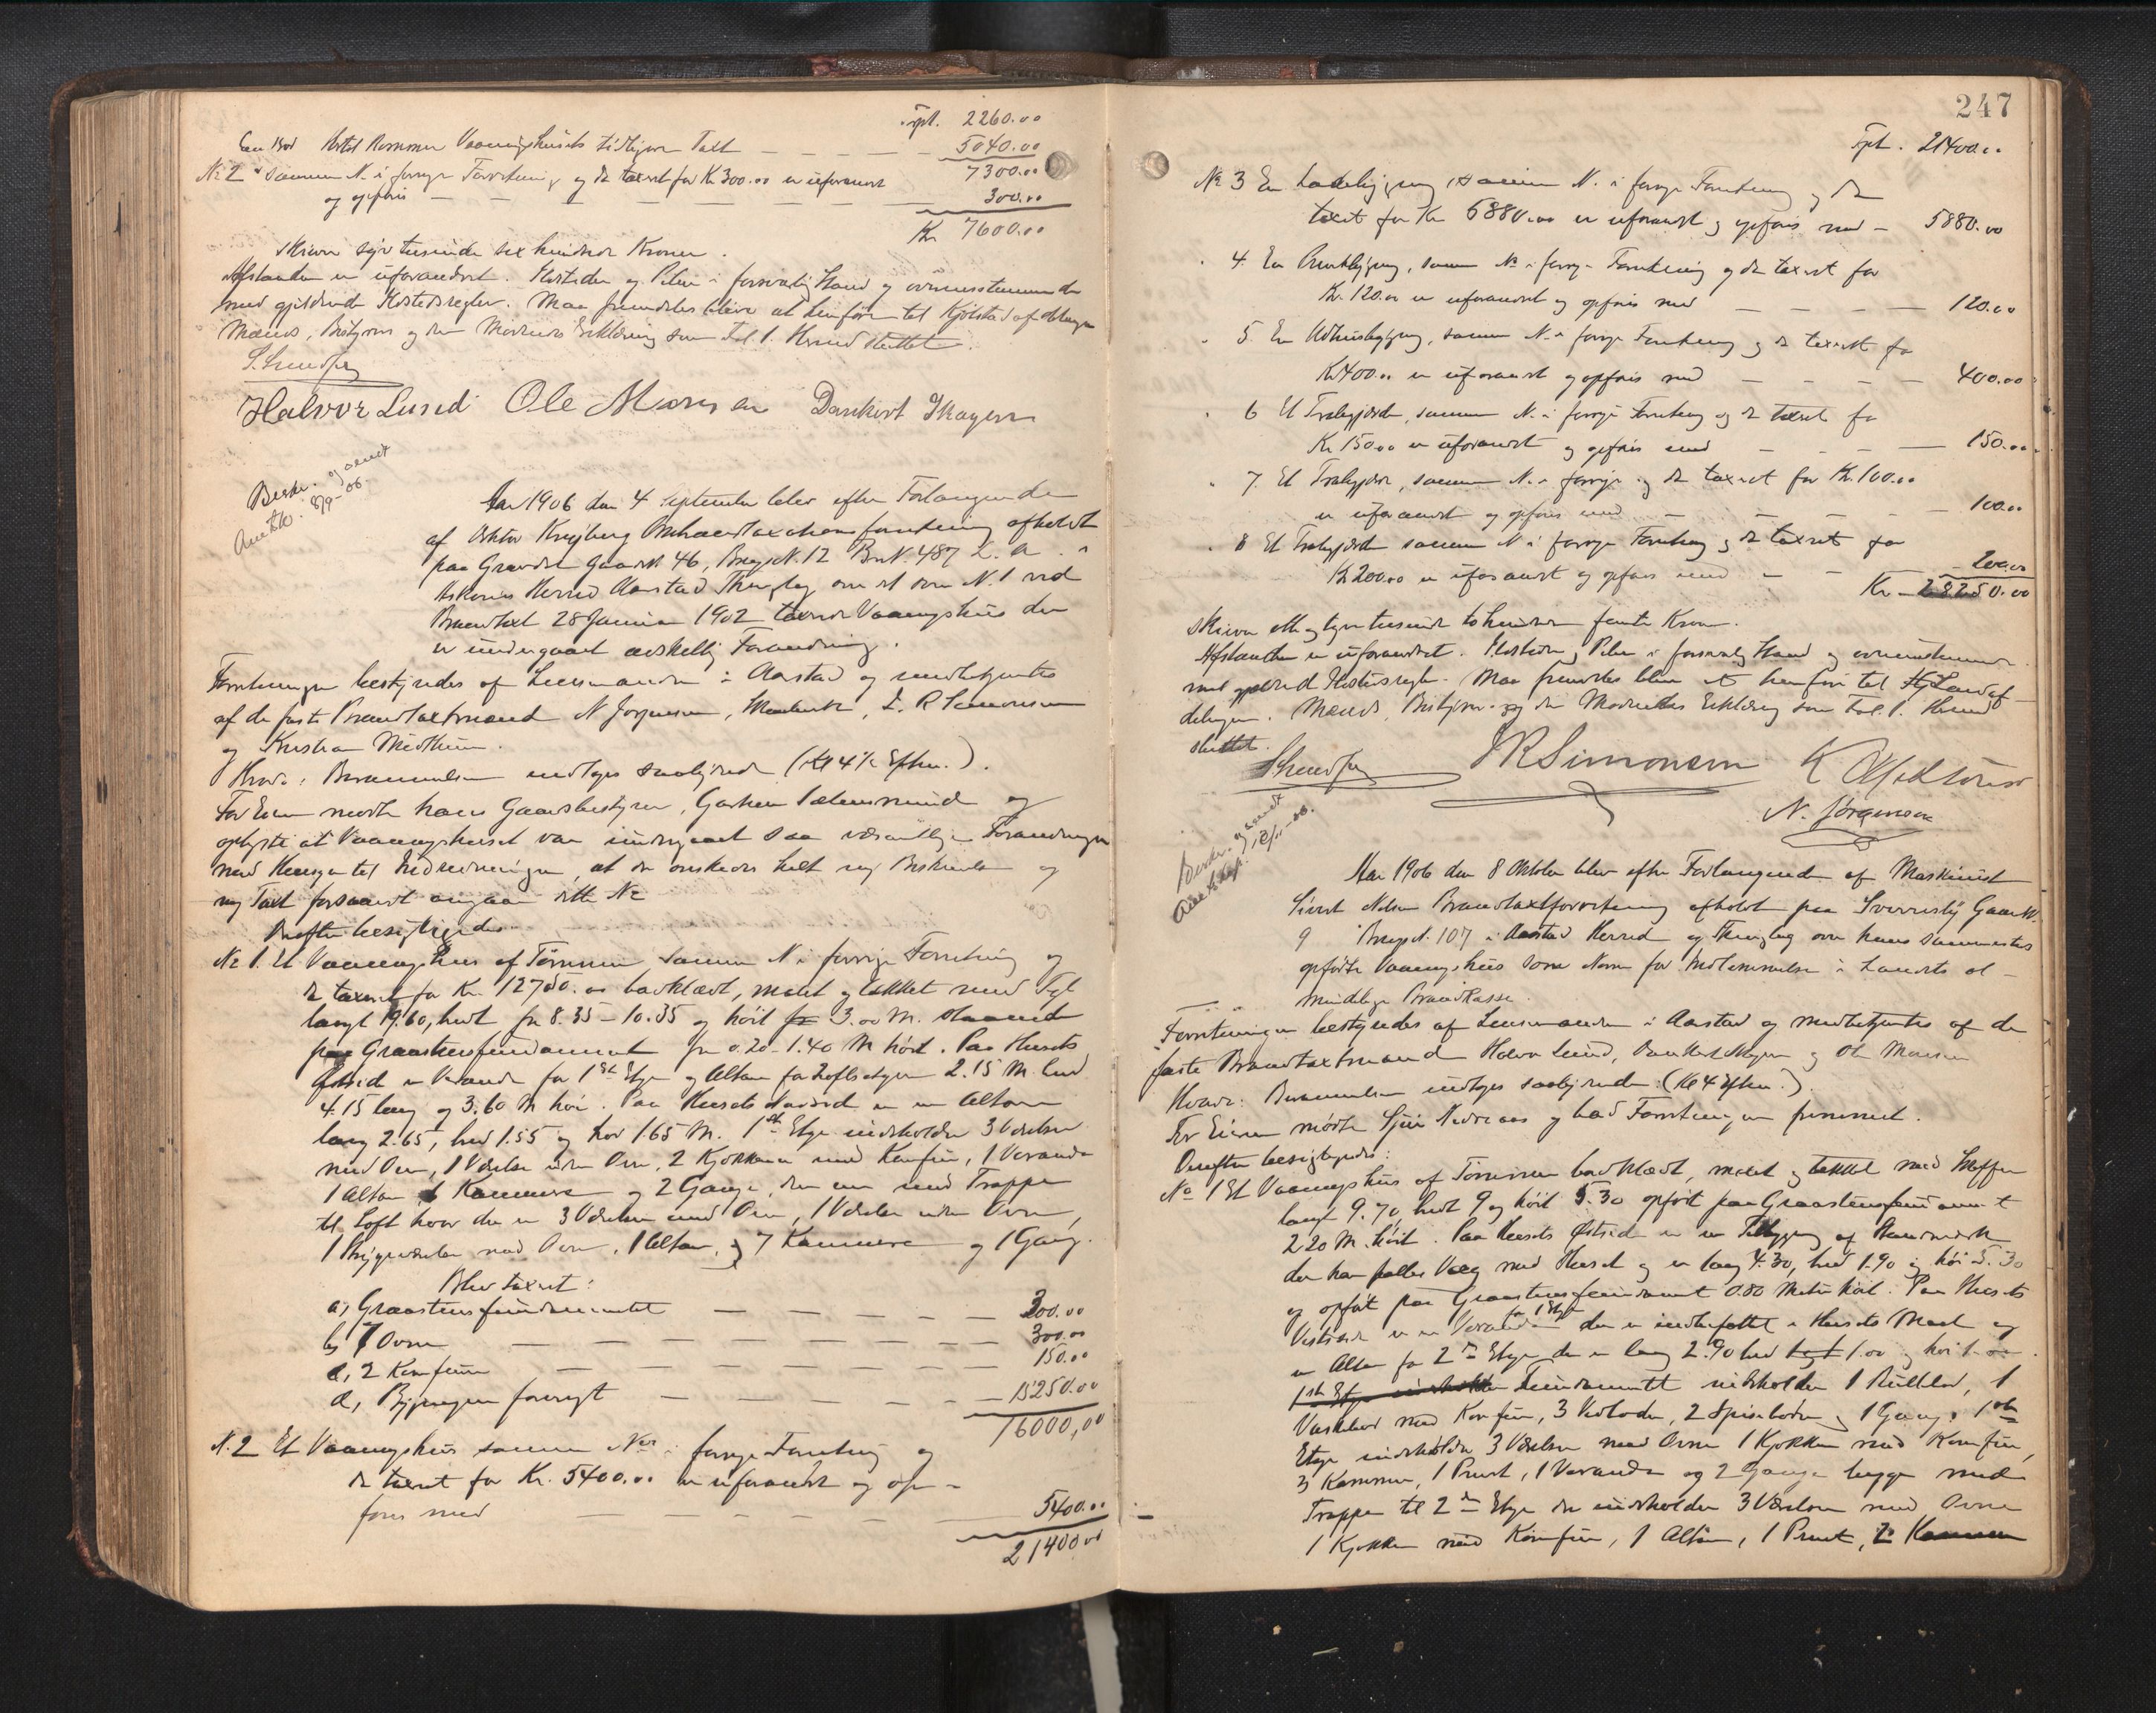 Trpt. 2260.00
hertil kommer Vaaningshusets tidligere Taxt — 5040.00
7300.00
No 2 samme N. i forrige Forretning og da taxeret for Kr 300.00 er uforandret
og opføres — 300.00
Kr 7600.00
skriver syv tusinde sex hundrede Kroner.
Afstanden er uforandret. Ildsteder og Piber i forsvarlig Stand og overensstemmende
med gjældende Ildstedsregler. Maa fremdeles blive at henføre til
Mænds, Bestyrers og den Mødendes Erklæring som Fol 1. Hermed sluttet.
Halvor Lund Ole Monsen Dankert Skagen
Beskr. og sendt
8/9-06.
Aar 1906 den 4 September blev efter Forlangende
af Doktor Krøyberg Omtaxationsforretning afholdt
paa Gaards N. 46, Brugs N. 12 Br N. 487
Askøens Herred Aarstad Thinglag over det som N. 1 ved
Brandtaxt 28 Januar 1902 taxerede Vaaningshus der
er undergaaet adskillig Forandring.
Forretningen bestyredes af Lensmanden i Aarstad og medbetjentes
af de faste Brandtaxtmænd N Jørgensen, I. R Simonsen
og Kristian Midttun.
Hvor: Berammelsen indtoges saalydende (Kl 4 ½ Eftm.).
For Eieren mødte hans Gaardsbestyrer, Gartner og
oplyste at Vaaningshuset var undergaaet saa væsentlige Forandringer
med Hensyn til Indredningen, at der ønskedes helt ny Beskrivelse og
ny Taxt forsaavidt angaar dette No
Derefter besigtigedes
No 1. Et Vaaningshus af Tømmer samme N i forrige Forretning og
da taxeret for Kr. 12750.00 bordklædt, malet og tækket med Tegl
langt 19.60, bredt fra 8.35 – 10.35 og høit 3.00 M. staaende
paa Graastensfundament fra 0.20 – 1.40 M høit. Paa Husets
er Veranda for 1ste Etage og Altan for Loftsetagen 2.15 M bred
4.15 lang og 3.60 M høi. Paa Husets er en Altan
lang 2.65, bred 1.55 og høi 1.65 M. 1ste Etage indeholder 3 Værelser
med Ovn, 1 Værelse uden Ovn, 2 Kjøkkener med Komfur, 1 Veranda
1 Altan, Kammere og 2 Gange, den ene med Trappe
til Loft hvor der er 3 Værelser med Ovn, 1 Værelse uden Ovn,
1 med Ovn, 1 Altan, 7 Kammere og 1 Gang.
Blev taxeret:
a, Graastensfundamentet — 300.00
b, 7 Ovne — 300.00
c, 2 Komfurer — 150.00
d, Bygningen forøvrigt — 15250.00
16000,00
N. 2 Et Vaaningshus samme No i forrige Forretning og
da taxeret for Kr. 5400.00 er uforandret og op-
føres med — 5400.00
21400.00
247
Trpt. 21400.00
No 3 En Ladebygning samme N. i forrige Forretning og da
taxeret for Kr 5880.00 er uforandret og opføres med – 5880.00
4. En Brændebygning, samme No i forrige Forretning og da taxeret for
Kr. 120.00 er uforandret og opføres med — 120.00
5. En Udhusbygning, samme N. i forrige Forretning og da taxeret for
Kr 400.00 er uforandret og opføres med — 400.00
6 Et samme N. i forrige Forretning og da taxeret for
Kr 150.00 er uforandret og opføres med — 150.00
7. Et samme N. i forrige og da taxeret for Kr. 100.00
er uforandret og opføres med — 100.00
8 Et samme N i forrige Forretning og da taxeret for
Kr 200.00 er uforandret og opføres med — 200.00
Kr – 28250.00
skriver otte og tyve tusinde to hundrede femti Kroner.
Afstanden er uforandret. Ildsteder og Piber i forsvarlig Stand og overensstemmende
med gjældende Ildstedsregler. Maa fremdeles blive at henføre til Landaf-
delingen. Mænds, Bestyrer og den Mødendes Erklæring som Fol. 1. Hermed
sluttet.
I R Simonsen K Midttun
N. Jørgensen
Beskr. og sendt
Aar 1906 den 8 Oktober blev efter Forlangende af Maskinist
Sivert Nilsen Brandtaxtforretning afholdt paa Sverresly Gaards N.
9 Brugs N. 107 i Aarstad Herred og Thinglag over hans sammesteds
opførte Vaaningshus som Norm for Indlemmelse i Landets al-
mindelige Brandkasse.
Forretningen bestyredes af Lensmanden i Aarstad og medbetjentes af de
faste Brandtaxtmænd Halvor Lund, Dankert Skagen og Ole Monsen
Hvor: Berammelsen indtoges saalydende: (Kl 4 Eftm.).
For Eieren mødte Nedreaas og bad Forretningen fremmet.
Derefter besigtigedes:
No 1 Et Vaaningshus af Tømmer bordklædt, malet og tækket med Skiffer
langt 9.70, bredt 9 og høit 5.30 opført paa Graastensfundament
2.20 M. høit. Paa Husets Østside er en Tilbygning af Standværk
der har fælles Væg med Huset og er lang 4.30, bred 1.90 og høi 5.30
og opført paa Graastensfundament 0.80 Meter høit. Paa Husets
Vestside er en Veranda for 1 Etage der er indbefattet i Husets Maal og
en Altan for 2den Etage der er lang 2.90 bred 1.00 og høi 1.00.
Fundamentet indeholder 1 Rullebod, 1
Vaskebod med Komfur, 3 Vedboder, 2 Spiseboder og 1 Gang. 1ste
Etage indeholder 3 Værelser med Ovne 1 Kjøkken med Komfur,
3 Kammer, 1 Privet, 1 Veranda og 2 Gange begge med
Trappe til 2den Etage der indeholder 3 Værelser med Ovne
1 Kjøkken med Komfur, 1 Altan, 1 Privet,